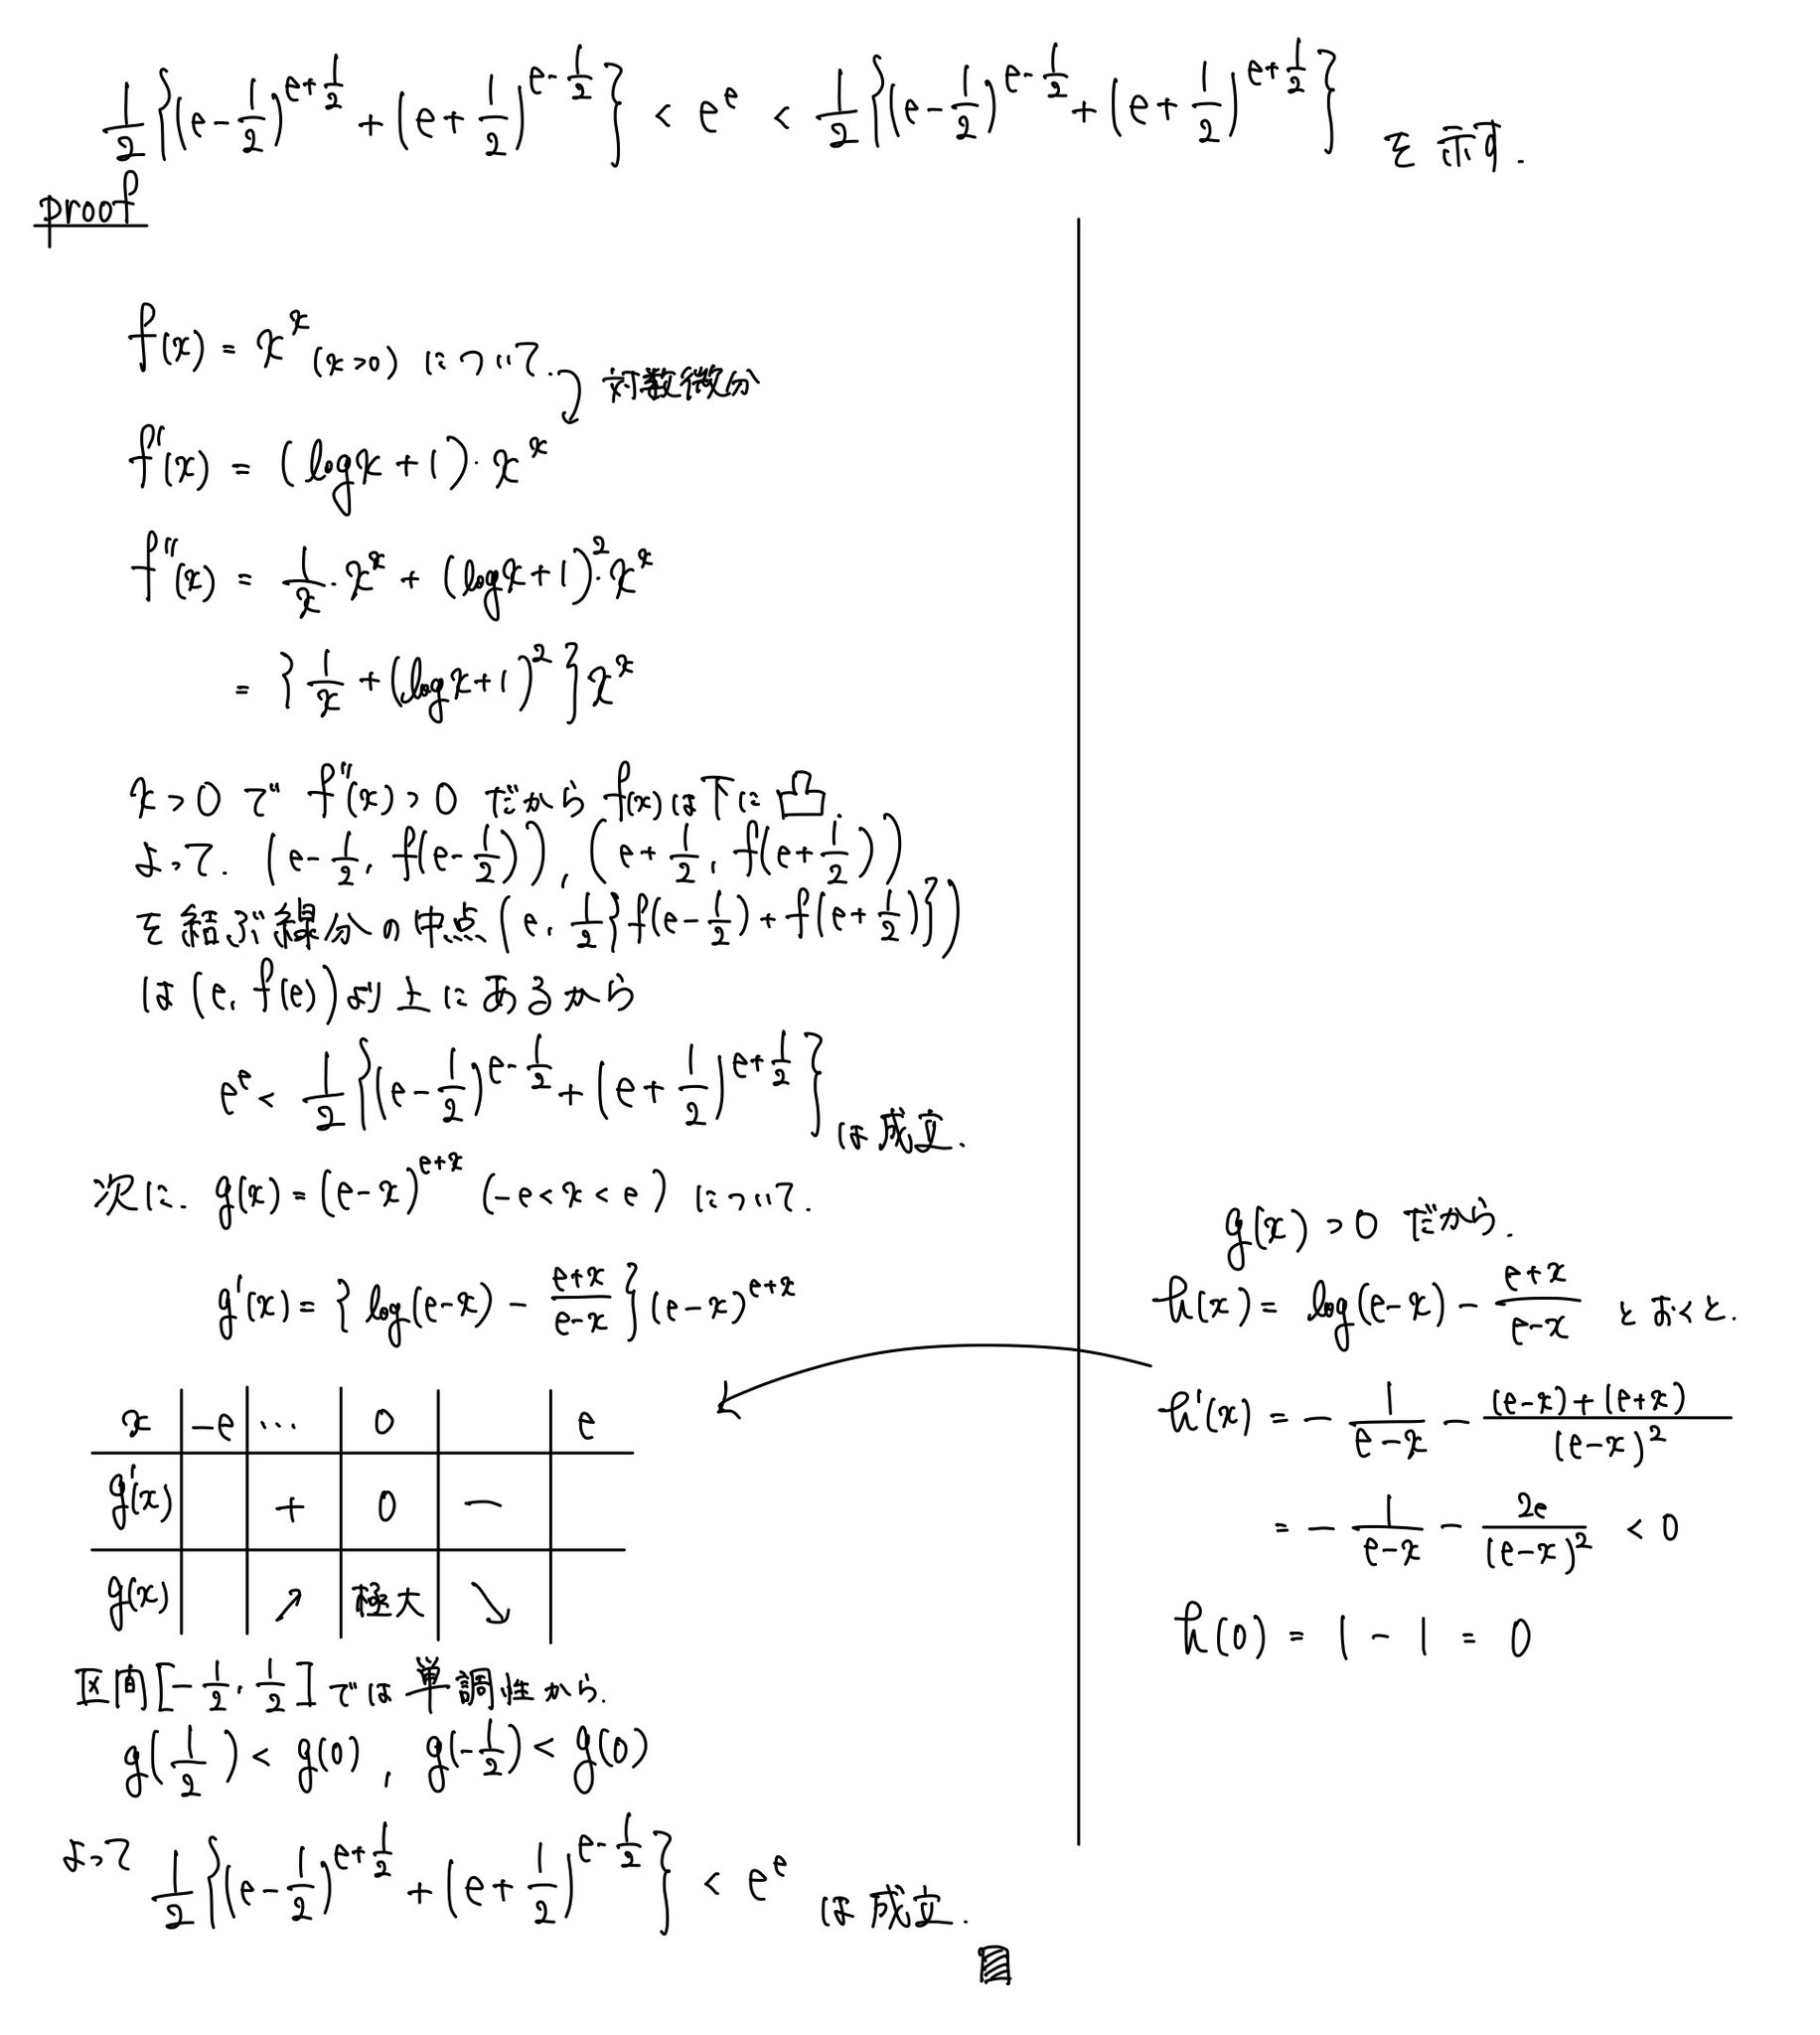 1/2{(e-1/2)^{e+1/2}+(e+1/2)^{e-1/2}} < e^e < 1/2{(e-1/2)^{e-1/2}+(e+1/2)^{e+1/2}} を示す.
proof
f(x) = x^x (x>0) について.
対数微分
f'(x) = (log x+1)・x^x
f''(x) = 1/x・x^x + (log x+1)^2・x^x
= {1/x+(log x+1)^2}x^x
x>0 で f''(x)>0 だから f(x)は下に凸.
よって. (e-1/2, f(e-1/2)), (e+1/2, f(e+1/2))
を結ぶ線分の中点(e, 1/2{f(e-1/2)+f(e+1/2)})
は(e, f(e))より上にあるから
e^e < 1/2{(e-1/2)^{e-1/2}+(e+1/2)^{e+1/2}} は成立.
次に. g(x)=(e-x)^{e+x} (-e<x<e) について.
g'(x)={log(e-x) - (e+x)/(e-x)}(e-x)^{e+x}
x -e … 0 e
g'(x) + 0 -
g(x) ↗ 極大 ↘
区間[-1/2, 1/2]では単調性から.
g(1/2) < g(0), g(-1/2) < g(0)
よって 1/2{(e-1/2)^{e+1/2}+(e+1/2)^{e-1/2}} < e^e は成立.
g(x) > 0 だから.
h(x) = log(e-x) - (e+x)/(e-x) とおくと.
h'(x) = - 1/(e-x) - ((e-x)+(e+x))/(e-x)^2
= - 1/(e-x) - 2e/(e-x)^2 < 0
h(0) = 1 - 1 = 0